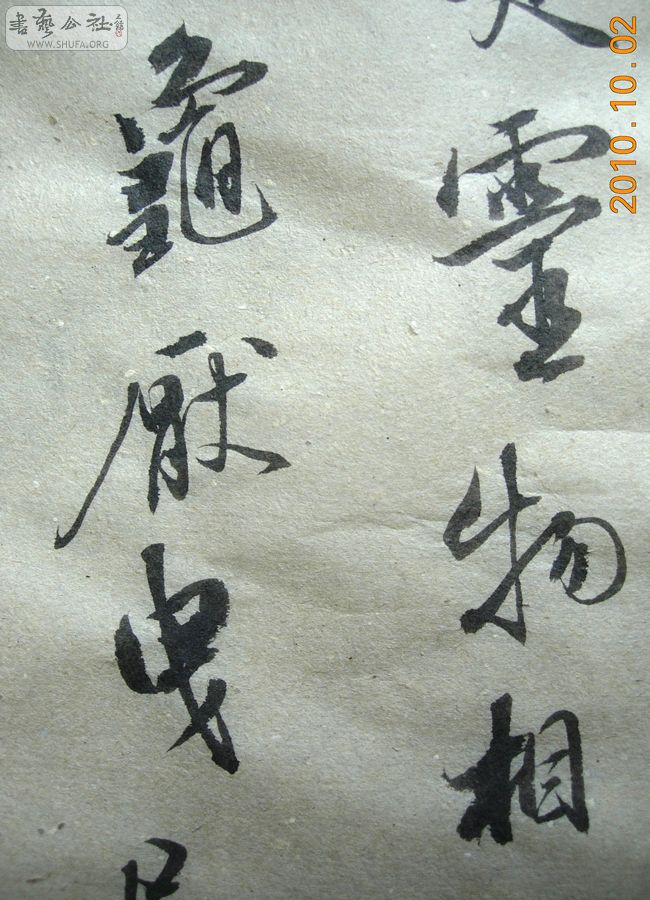 書藝公社
WWW.SHUFA.ORG
2010.10.02
靈物相
龜厭曳